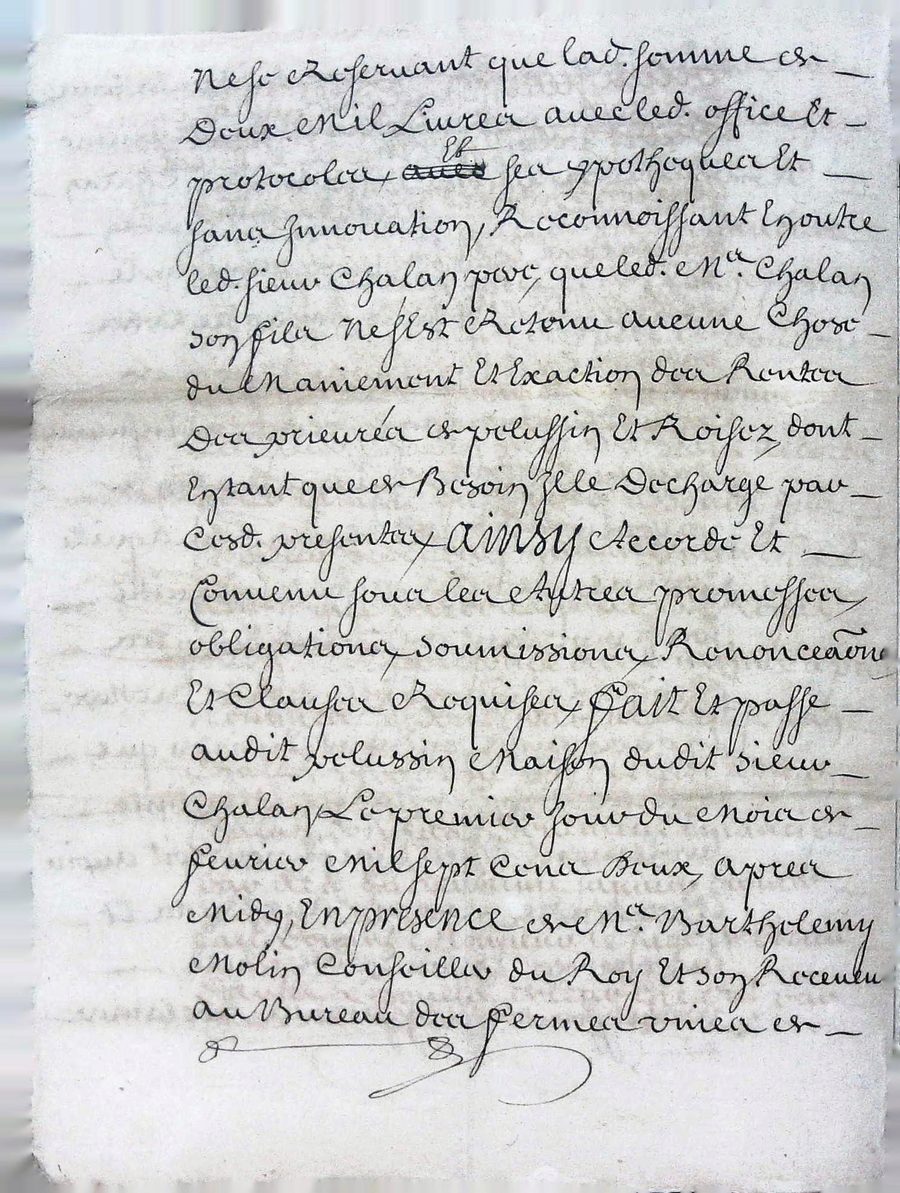 Ne se Reservant que lad. somme de
Deux Mil Livres avec led. office Et
protocoles, Et ses ypotheques Et
sans Innovation, Reconnoissant En outre
led. sieur Chalan pere, que led. Me. Chalan
son fils Ne s'Est Retenu aucune Chose
du Maniement Et Exaction des Rentes
Des prieurés de pelussin Et Roisez, dont
Entant que de Besoin Il le Decharge par
Cesd. presentes, Ainsy Accordé Et
Convenu sous les Autres promesses,
obligations, soumissions, Renonceaõns
Et Clauses Requises, fait Et passé
audit pelussin Maison dudit sieur
Chalan, Le premier Jour du Mois de
fevrier Mil sept Cens Deux, apres
Midy, En presence de Me. Barthelemy
Molin Conseiller du Roy Et son Receveu
au Bureau des fermes unies de